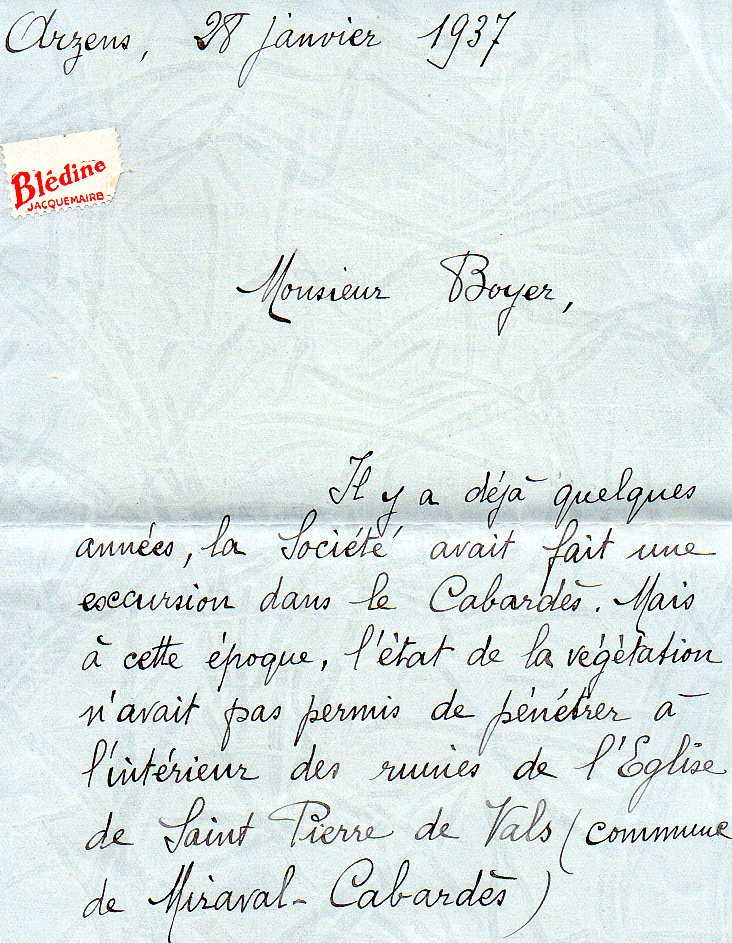 Arzens, 28 janvier 1937
Blédine
JACQUEMAIRE
Monsieur Boyer,
Il y a déjà quelques
années, la Société avait fait une
exccursion dans le Cabardès. Mais
à cette époque, l'état de la végétation
n'avait pas permis de pénétrer à
l'intérieur des ruines de l'Eglise
de Saint Pierre de Vals (commune
de Miraval-Cabardès)